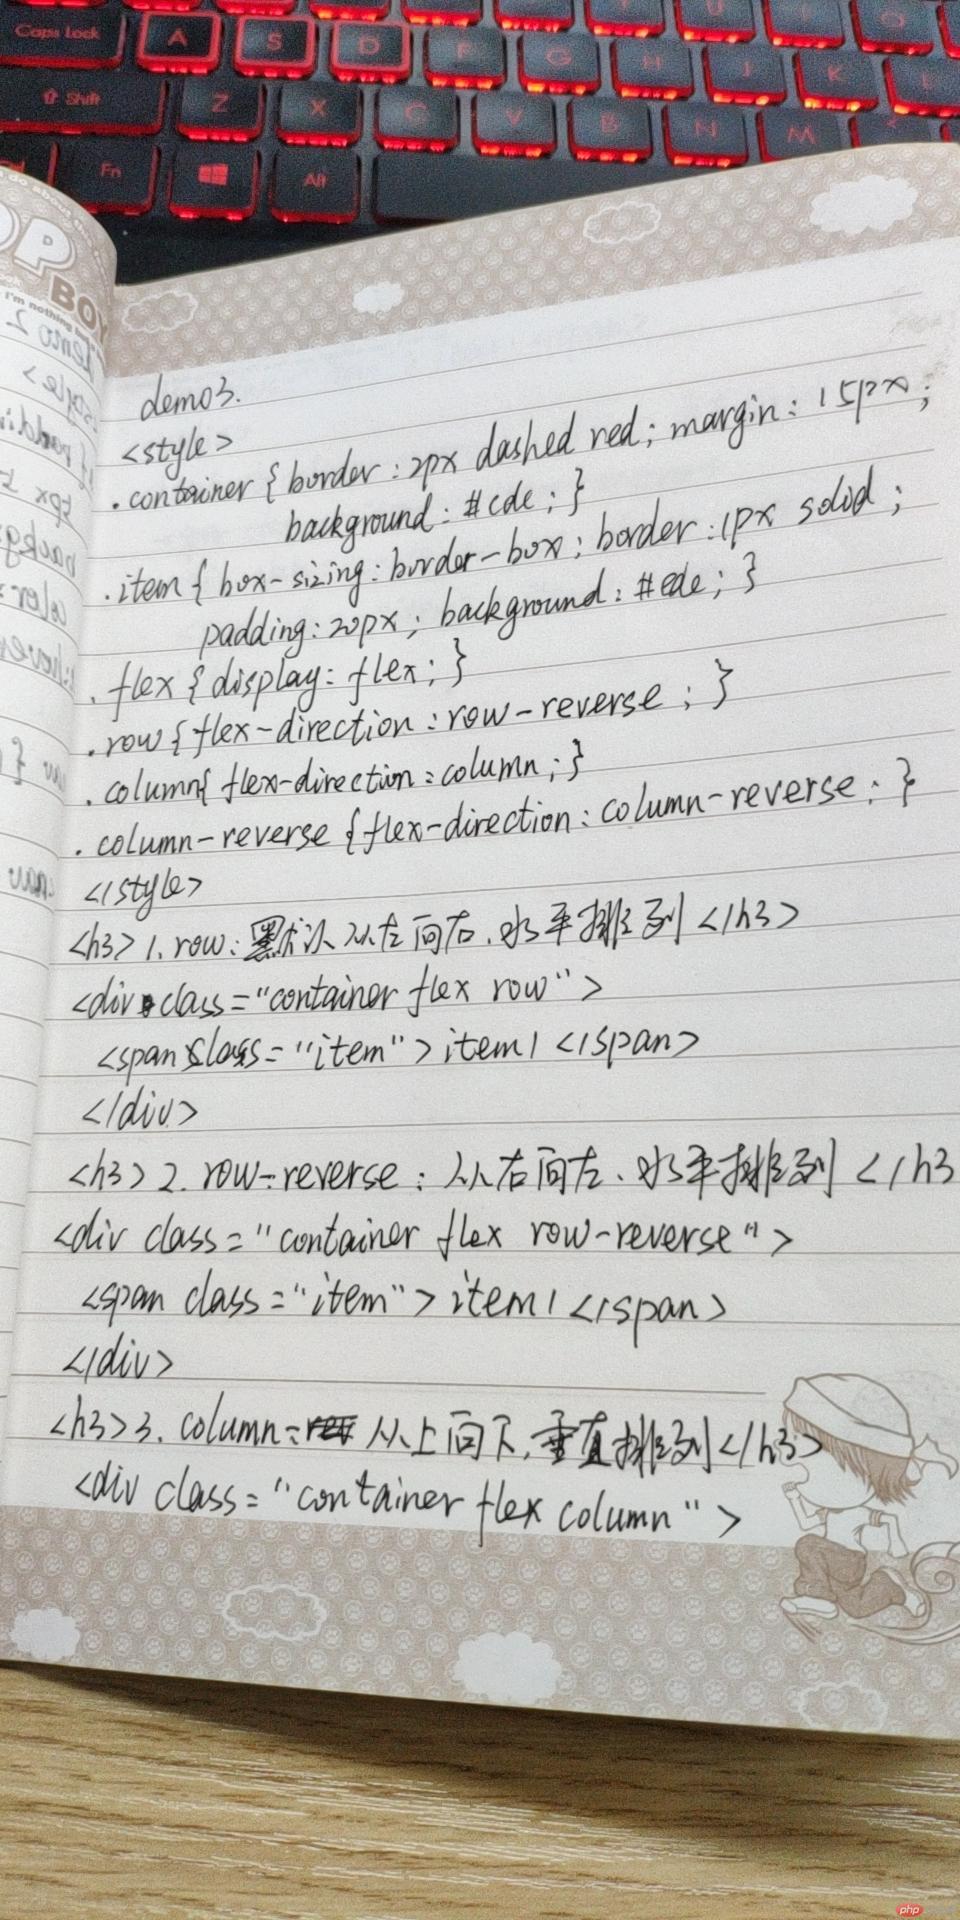 Caps Lock A S D F G H J K L
Shift Z X C V B N M
Fn Alt
OP
BOY
I'm nothing
demo3.
<style>
.container { border : 2px dashed red ; margin : 15px ;
background : #cde ; }
.item { box-sizing : border-box ; border : 1px solid ;
padding : 20px ; background : #ede ; }
.flex { display : flex ; }
.row { flex-direction : row-reverse ; }
.column{ flex-direction : column ; }
.column-reverse { flex-direction : column-reverse ; }
</style>
<h3> 1. row : 默认从左向右、水平排列 </h3>
<div class="container flex row">
<span class="item"> item1 </span>
</div>
<h3> 2. row-reverse : 从右向左、水平排列 </h3
<div class="container flex row-reverse">
<span class="item"> item1 </span>
</div>
<h3> 3. column : 从上向下、垂直排列 </h3>
<div class="container flex column">
php